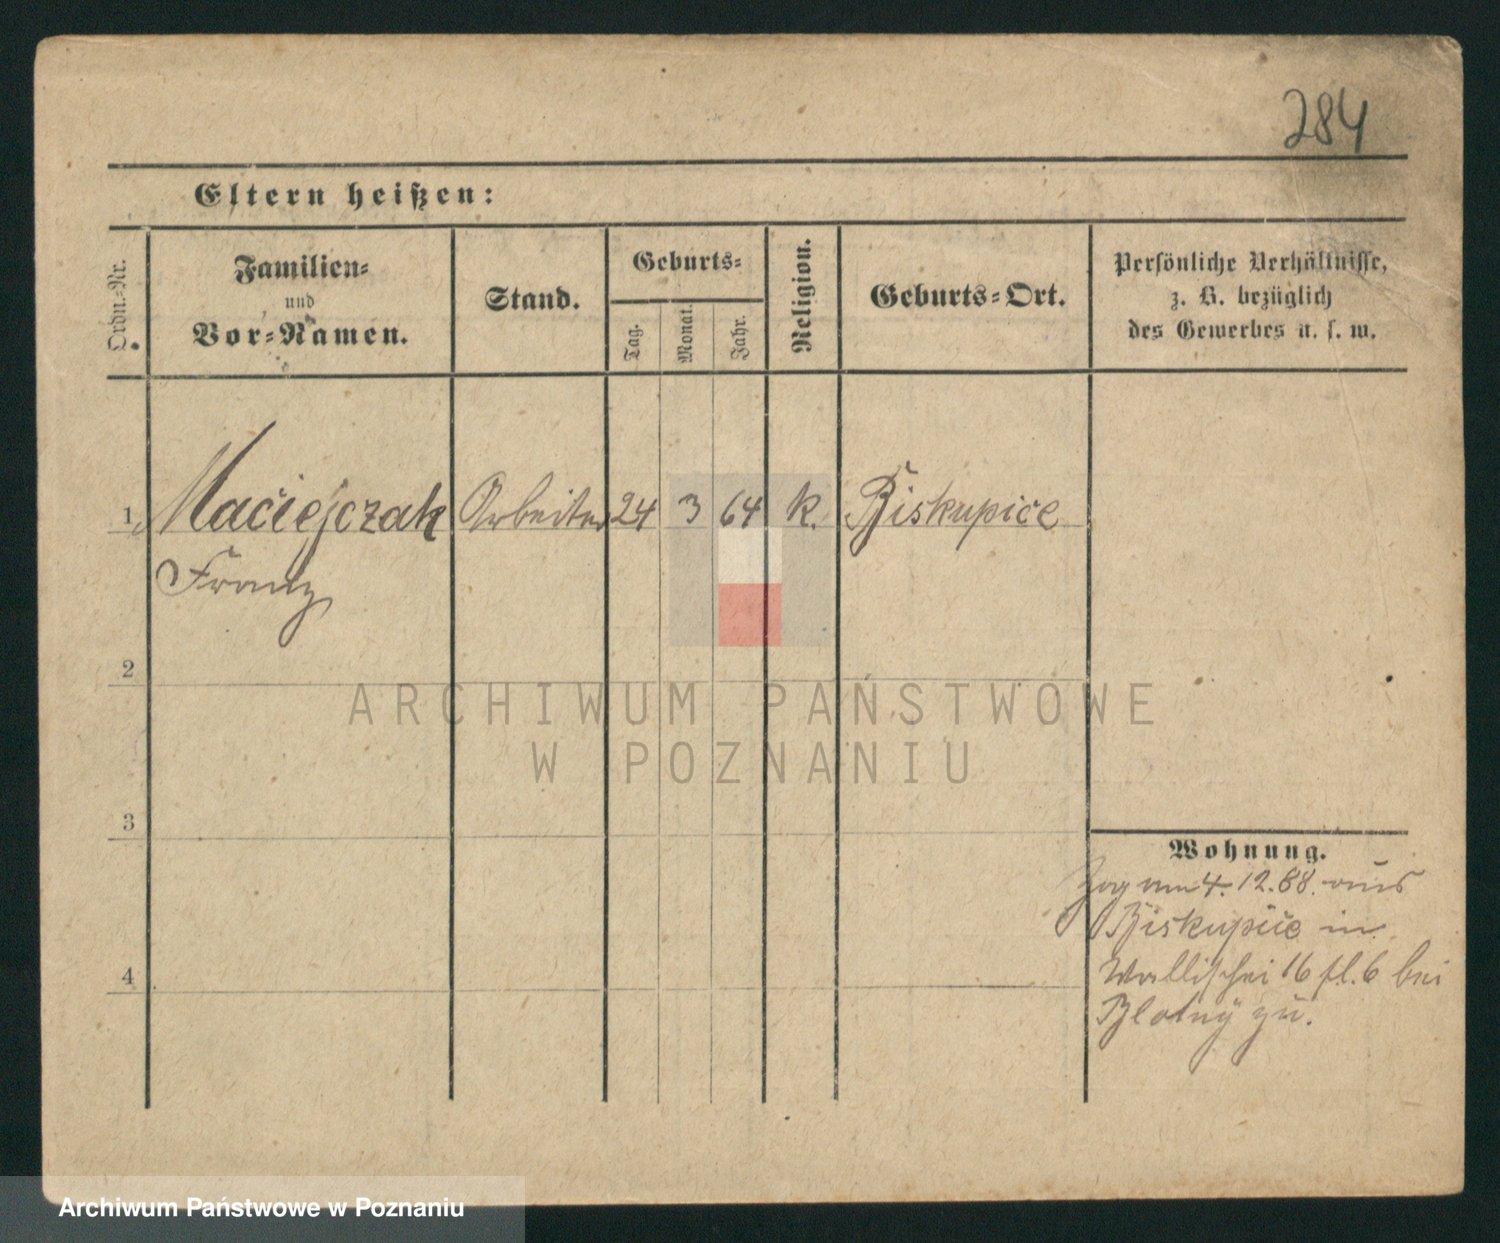 284
Eltern heißen:
Ordn.-Nr.
Familien-
und
Vor-Namen.
Stand.
Geburts-
Tag.
Monat.
Jahr.
Religion.
Geburts-Ort.
Persönliche Verhältnisse,
z. B. bezüglich
des Gewerbes u. s. w.
1 Maciejczak Arbeiter 24 3 64 k. Biskupice
Franz
2
3
4
Wohnung.
Zog am 4.12.88. aus
Biskupice in
Wallischei 16 fl. 6 bei
Blotny zu.
ARCHIWUM PAŃSTWOWE
W POZNANIU
Archiwum Państwowe w Poznaniu